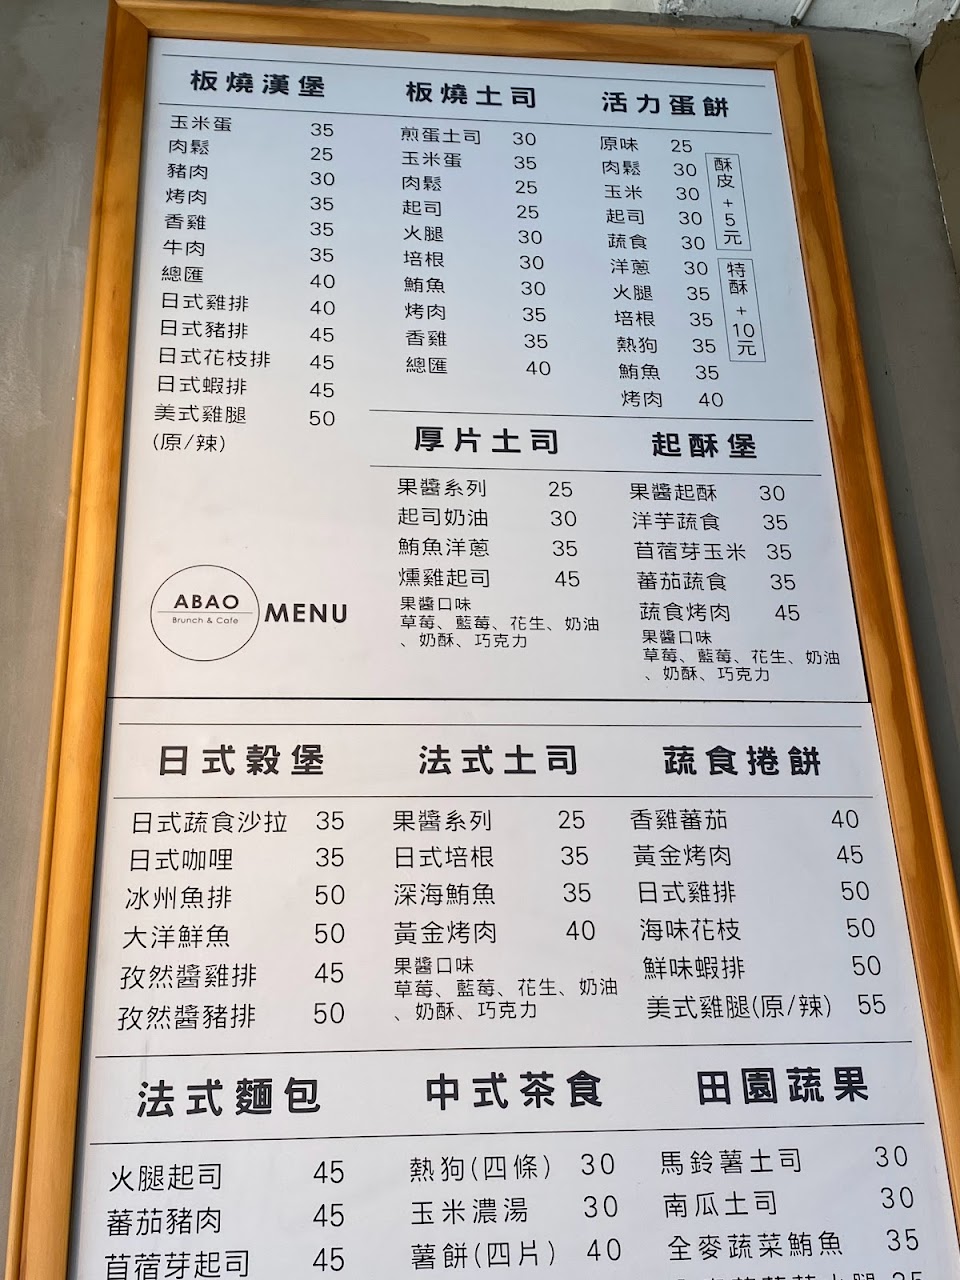 板燒漢堡
玉米蛋 35
肉鬆 25
豬肉 30
烤肉 35
香雞 35
牛肉 35
總匯 40
日式雞排 40
日式豬排 45
日式花枝排 45
日式蝦排 45
美式雞腿 50
(原/辣)
板燒土司
煎蛋土司 30
玉米蛋 35
肉鬆 25
起司 25
火腿 30
培根 30
鮪魚 30
烤肉 35
香雞 35
總匯 40
活力蛋餅
原味 25
肉鬆 30
玉米 30
起司 30
蔬食 30
洋蔥 30
火腿 35
培根 35
熱狗 35
鮪魚 35
烤肉 40
酥皮+5元
特酥+10元
厚片土司
果醬系列 25
起司奶油 30
鮪魚洋蔥 35
燻雞起司 45
果醬口味
草莓、藍莓、花生、奶油
、奶酥、巧克力
起酥堡
果醬起酥 30
洋芋蔬食 35
苜蓿芽玉米 35
蕃茄蔬食 35
蔬食烤肉 45
果醬口味
草莓、藍莓、花生、奶油
、奶酥、巧克力
ABAO
Brunch & Cafe
MENU
日式穀堡
日式蔬食沙拉 35
日式咖哩 35
冰州魚排 50
大洋鮮魚 50
孜然醬雞排 45
孜然醬豬排 50
法式土司
果醬系列 25
日式培根 35
深海鮪魚 35
黃金烤肉 40
果醬口味
草莓、藍莓、花生、奶油
、奶酥、巧克力
蔬食捲餅
香雞蕃茄 40
黃金烤肉 45
日式雞排 50
海味花枝 50
鮮味蝦排 50
美式雞腿(原/辣) 55
法式麵包
火腿起司 45
蕃茄豬肉 45
苜蓿芽起司 45
中式茶食
熱狗(四條) 30
玉米濃湯 30
薯餅(四片) 40
田園蔬果
馬鈴薯土司 30
南瓜土司 30
全麥蔬菜鮪魚 35